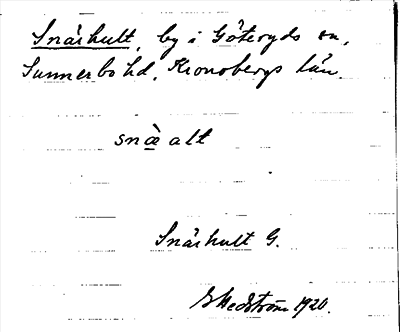 Snärhult, by i Göteryds sn,
Sunnerbo hd, Kronobergs län.
snä̀ alt
Snärhult G.
G Hedström 1920.